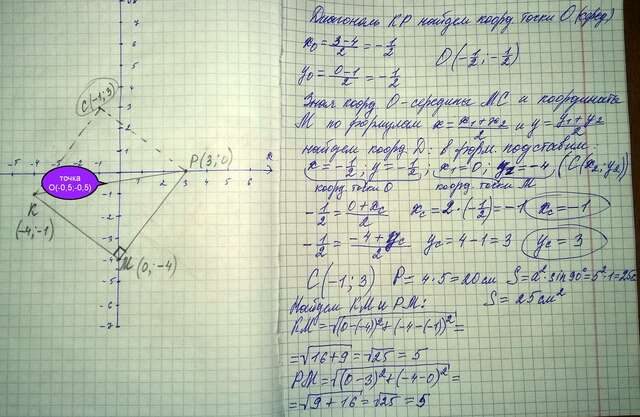 C(-1;3)
P(3;0)
точка
O(-0,5;-0,5)
K
(-4;-1)
M(0;-4)
Диагональ KP найдем коорд. точки O (серед)
x₀ = (3-4)/2 = -1/2
O(-1/2; -1/2)
y₀ = (0-1)/2 = -1/2
Зная коорд. O-середины MC и координаты
M по формулам x = (x₁+x₂)/2 и y = (y₁+y₂)/2
найдем коорд. D: в форм. подставим:
x = -1/2; y = -1/2; x₁ = 0; y₂ = -4, (C(x₂; y₂))
коорд. точки O коорд. точки M
-1/2 = (0+x_c)/2 x_c = 2·(-1/2) = -1 x_c = -1
-1/2 = (-4+y_c)/2 y_c = 4-1 = 3 y_c = 3
C(-1;3) P = 4·5 = 20см S = a²·sin90° = 5²·1 = 25см
Найдем KM и PM: S = 25см²
KM = √((0-(-4))²+(-4-(-1))²) =
= √(16+9) = √25 = 5
PM = √((0-3)²+(-4-0)²) =
= √(9+16) = √25 = 5